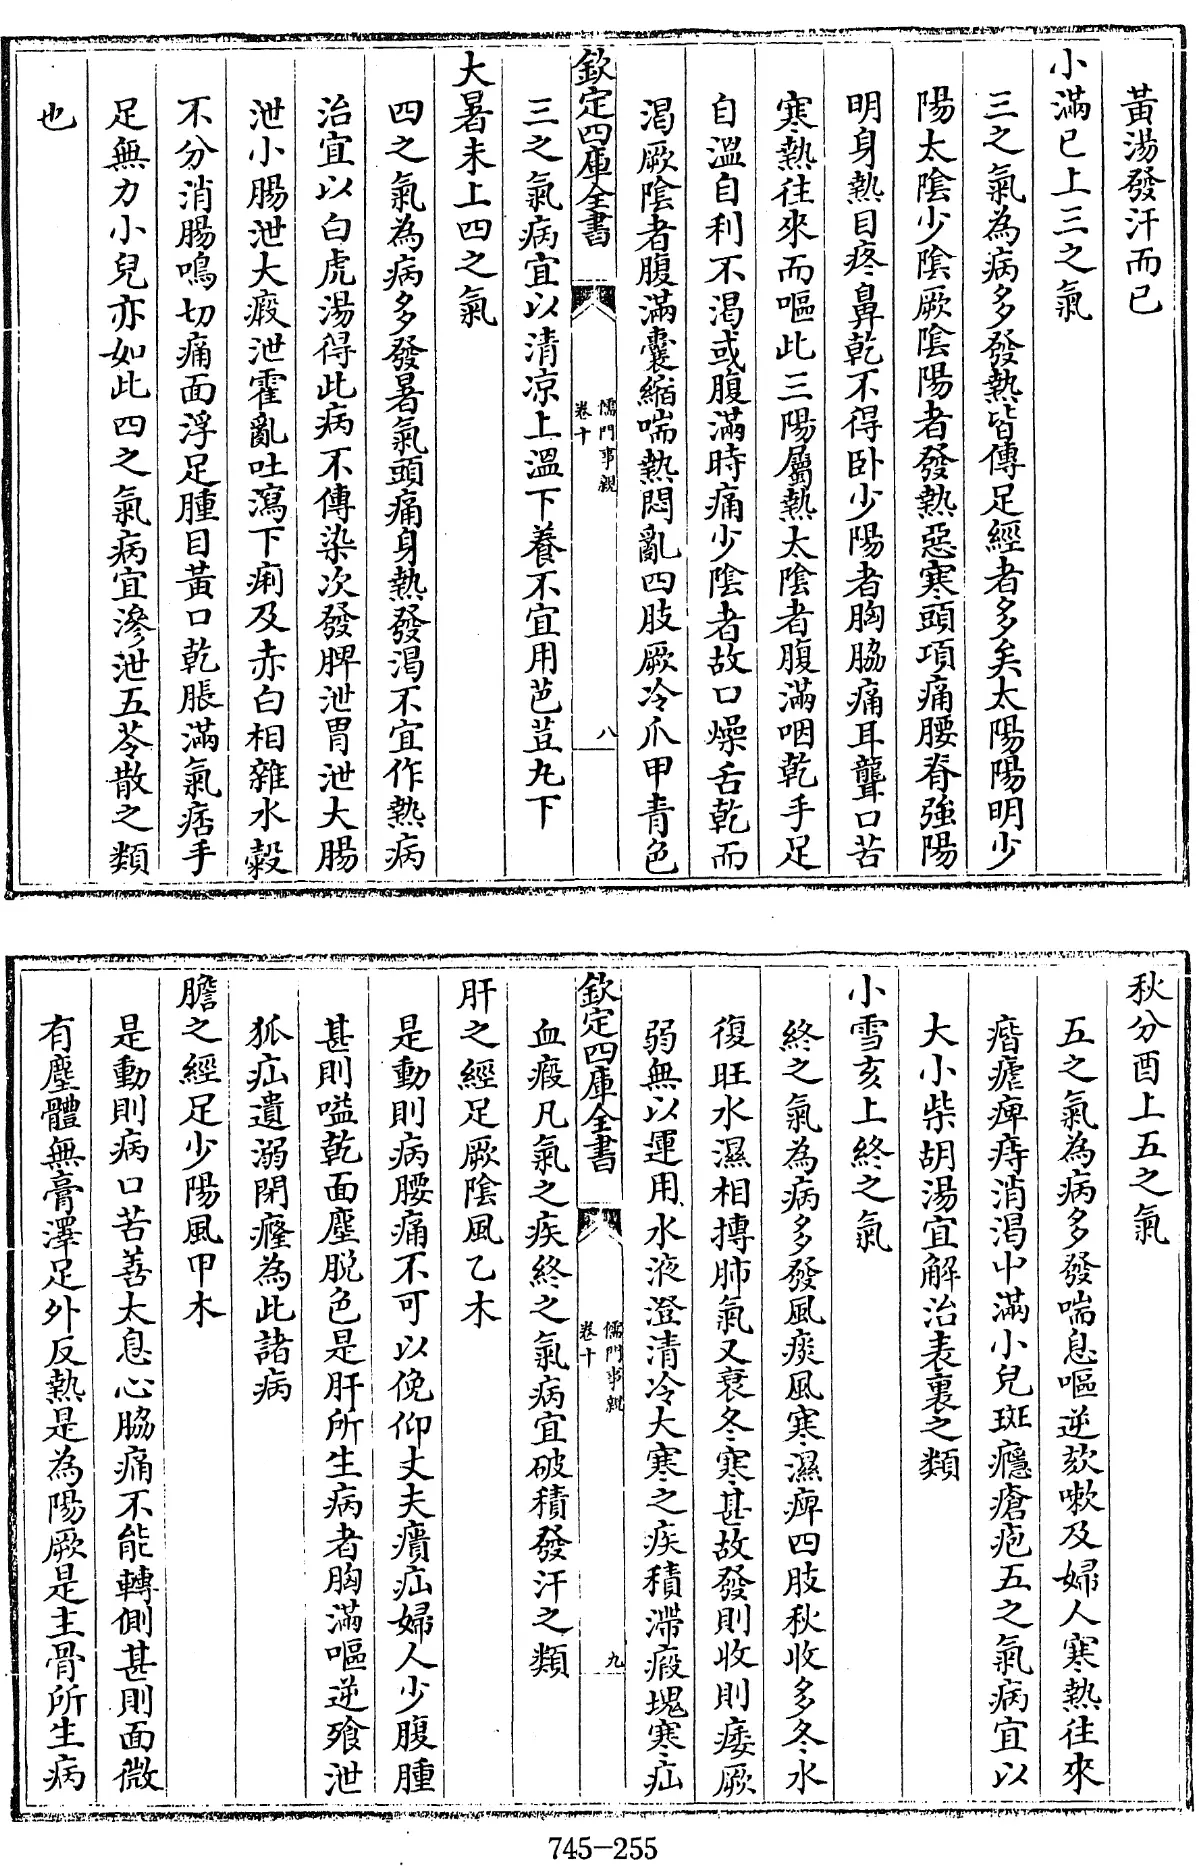 黃湯發汗而已
小滿巳上三之氣
三之氣為病多發熱皆傳足經者多矣太陽陽明少
陽太陰少陰厥陰陽者發熱惡寒頭項痛腰脊強陽
明身熱目疼鼻乾不得卧少陽者胸脇痛耳聾口苦
寒熱往來而嘔此三陽屬熱太陰者腹滿咽乾手足
自溫自利不渴或腹滿時痛少陰者故口燥舌乾而
渴厥陰者腹滿囊縮喘熱悶亂四肢厥冷爪甲青色
欽定四庫全書
儒門事親
卷十
八
三之氣病宜以清凉上溫下養不宜用芭荳丸下
大暑未上四之氣
四之氣為病多發暑氣頭痛身熱發渴不宜作熱病
治宜以白虎湯得此病不傳染次發脾泄胃泄大腸
泄小腸泄大瘕泄霍亂吐瀉下痢及赤白相雜水穀
不分消腸鳴切痛面浮足腫目黃口乾脹滿氣痞手
足無力小兒亦如此四之氣病宜滲泄五苓散之類
也
秋分酉上五之氣
五之氣為病多發喘息嘔逆欬嗽及婦人寒熱往來
痻瘧痺痔消渴中滿小兒斑癮瘡疱五之氣病宜以
大小柴胡湯宜解治表裏之類
小雪亥上終之氣
終之氣為病多發風痰風寒濕痺四肢秋收多冬水
復旺水濕相搏肺氣又衰冬寒甚故發則收則痿厥
弱無以運用水液澄清冷大寒之疾積滯瘕塊寒疝
欽定四庫全書
儒門事親
卷十
九
血瘕凡氣之疾終之氣病宜破積發汗之類
肝之經足厥陰風乙木
是動則病腰痛不可以俛仰丈夫㿉疝婦人少腹腫
甚則嗌乾面塵脱色是肝所生病者胸滿嘔逆飱泄
狐疝遺溺閉癃為此諸病
膽之經足少陽風甲木
是動則病口苦善太息心脇痛不能轉側甚則面微
有塵體無膏澤足外反熱是為陽厥是主骨所生病
745-255